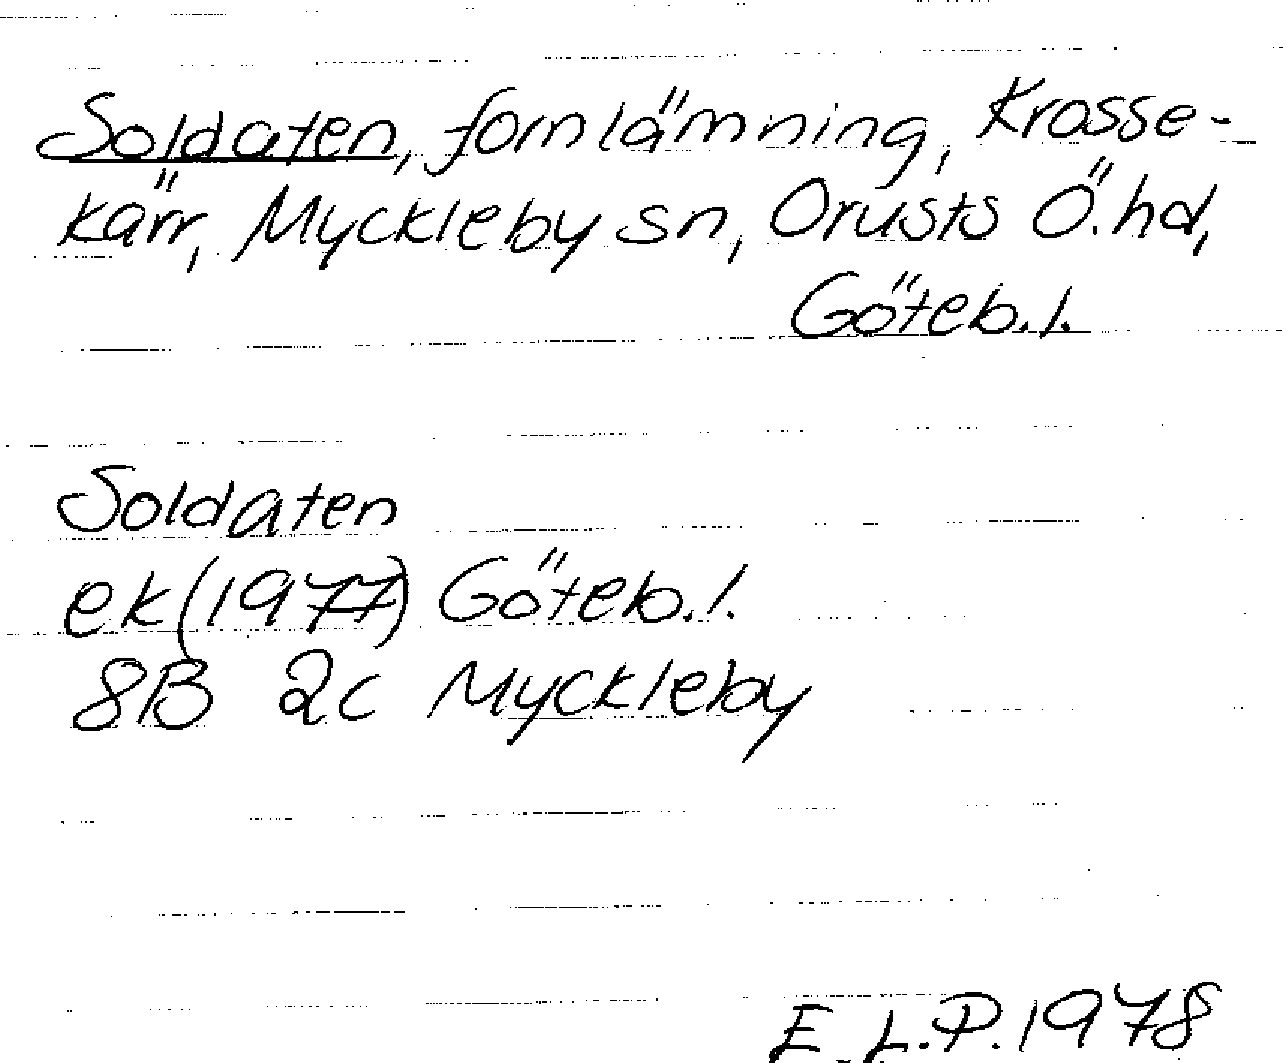 Soldaten, fornlämning, Krosse-
kärr, Myckleby sn, Orusts Ö. hd,
Göteb. l.
Soldaten
ek (1977) Göteb. l.
8B 2c Myckleby
E. L. P. 1978